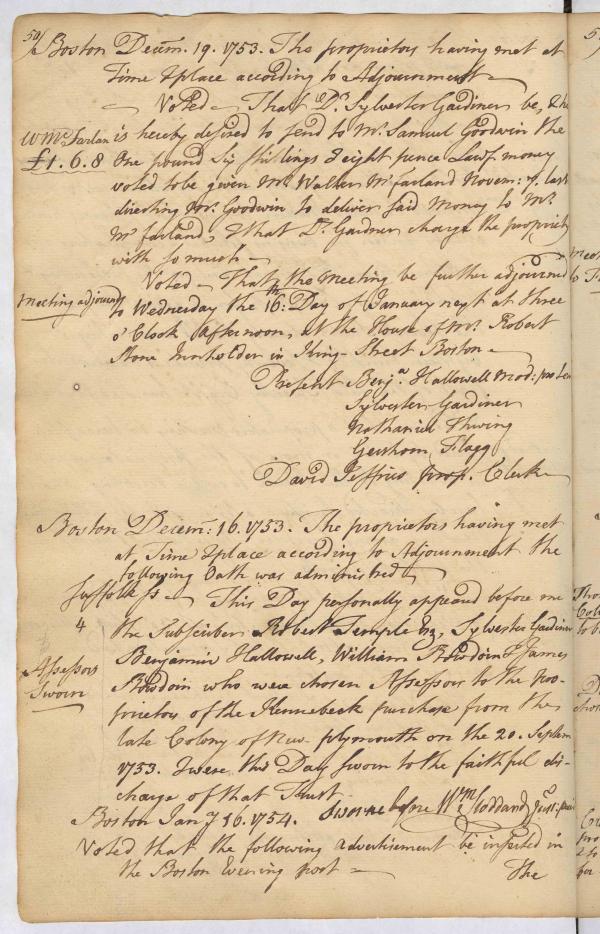 50/
Boston Decem: 19. 1753. The proprietors having met at
Time & place according to Adjournment
Voted – That Dr. Sylvester Gardiner be, & he
Wm McFarlan is hereby desired to send to Mr. Samuel Goodwin the
£1.6.8 One pound Six Shillings & eight pence Lawf. money
voted to be given Mr. Walter McFarland Novem: 7. last
directing Mr. Goodwin to deliver said Money to Mr.
McFarland, & that Dr. Gardner charge the propriety
with so much
Voted – That the meeting be further adjourned
meeting adjourned to Wednesday the 16th: Day of January next at three
o'Clock afternoon, at the House of Mr. Robert
Stone Innholder in King-Street Boston
Present Benja. Hallowell Mod: pro tem
Sylvester Gardiner
Nathaniel Thwing
Gershom Flagg
David Jeffries prop. Clerk
Boston Decem: 16. 1753. The proprietors having met
at Time & place according to Adjournment the
following Oath was administred
Suffolk Ss. This Day personally appeard before me
4 the Subscriber Robert Temple Esq, Sylvester Gardiner
Benjamin Hallowell, William Bowdoin & James
Assessors Bowdoin who were chosen Assessors to the pro-
Sworn prietors of the Kennebeck purchase from the
late Colony of New-plymouth on the 20. Septem
1753. & were this Day Sworn to the faithful dis-
charge of that Trust.
Sworne before Wm. Stoddard Just: peace
Boston Jany 16. 1754.
Voted that the following advertisement be inserted in
the Boston Evening post –
The